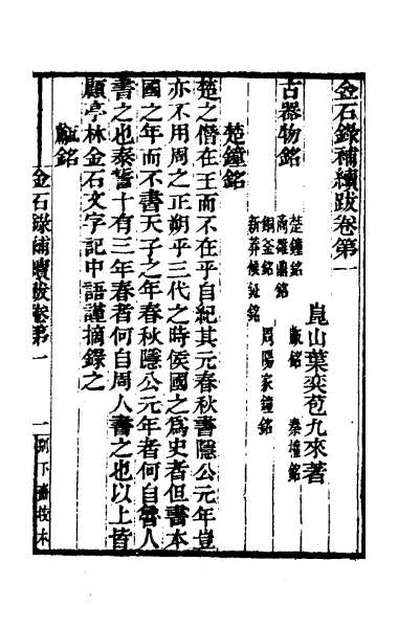 金石錄補續跋卷第一
崑山葉奕苞九來著
古器物銘
楚鐘銘 甗銘 秦權銘
商雒鼎銘
銅釜銘 周陽家鐘銘
新莽候鉦銘
楚鐘銘
楚之僭在王而不在乎自紀其元春秋書隱公元年豈
亦不用周之正朔乎三代之時侯國之爲史者但書本
國之年而不書天子之年春秋隱公元年者何自魯人
書之也泰誓十有三年春者何自周人書之也以上皆
顧亭林金石文字記中語謹摘錄之
甗銘
金石錄補續跋卷第一
一
別下齋校本